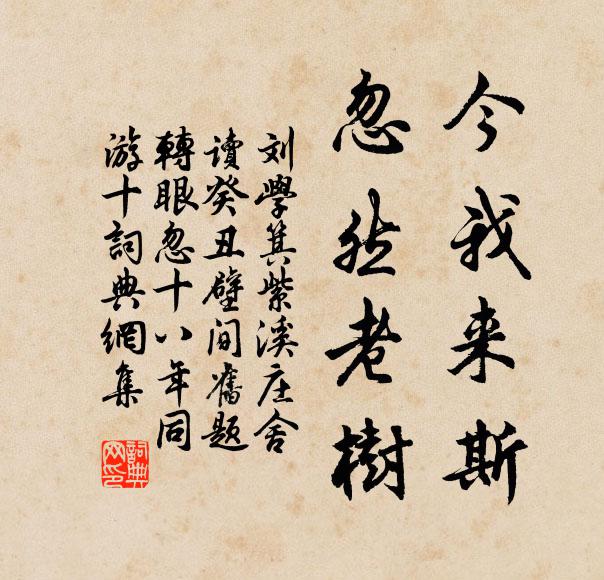 今我来斯
忽然老樹
刘學箕紫溪庄舍
讀癸丑壁间舊题
轉眼忽十八年同
游十詞典網集
詞典
网印